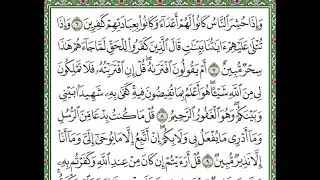 وَإِذَا حُشِرَ النَّاسُ كَانُوا لَهُمْ أَعْدَاءً وَكَانُوا بِعِبَادَتِهِمْ كَافِرِينَ ٦ وَإِذَا
تُتْلَى عَلَيْهِمْ ءَايَاتُنَا بَيِّنَاتٍ قَالَ الَّذِينَ كَفَرُوا لِلْحَقِّ لَمَّا جَاءَهُمْ هَذَا
سِحْرٌ مُبِينٌ ٧ أَمْ يَقُولُونَ افْتَرَاهُ قُلْ إِنِ افْتَرَيْتُهُ فَلَا تَمْلِكُونَ
لِي مِنَ اللَّهِ شَيْئًا هُوَ أَعْلَمُ بِمَا تُفِيضُونَ فِيهِ كَفَى بِهِ شَهِيدًا بَيْنِي
وَبَيْنَكُمْ وَهُوَ الْغَفُورُ الرَّحِيمُ ٨ قُلْ مَا كُنْتُ بِدْعًا مِنَ الرُّسُلِ
وَمَا أَدْرِي مَا يُفْعَلُ بِي وَلَا بِكُمْ إِنْ أَتَّبِعُ إِلَّا مَا يُوحَى إِلَيَّ وَمَا أَنَا
إِلَّا نَذِيرٌ مُبِينٌ ٩ قُلْ أَرَءَيْتُمْ إِنْ كَانَ مِنْ عِنْدِ اللَّهِ وَكَفَرْتُمْ بِهِ